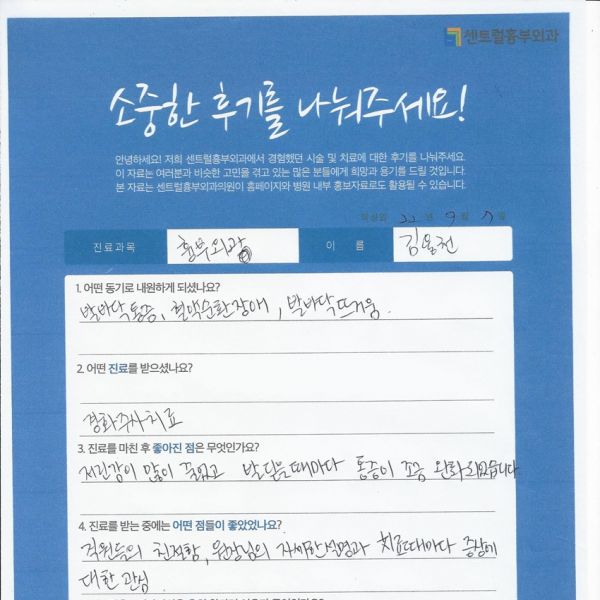 센트럴흉부외과
소중한 후기를 나눠주세요!
안녕하세요! 저희 센트럴흉부외과에서 경험했던 시술 및 치료에 대한 후기를 나눠주세요.
이 자료는 여러분과 비슷한 고민을 겪고 있는 많은 분들에게 희망과 용기를 드릴 것입니다.
본 자료는 센트럴흉부외과의원이 홈페이지와 병원 내부 홍보자료로도 활용될 수 있습니다.
작성일 22 년 9 월 7 일
진료과목 흉부외과 이 름 김옥천
1. 어떤 동기로 내원하게 되셨나요?
발바닥통증, 혈액순환장애, 발바닥뜨거움.
2. 어떤 진료를 받으셨나요?
경화주사치료
3. 진료를 마친 후 좋아진 점은 무엇인가요?
저린감이 많이 줄었고 발 딛을때마다 통증이 조금 완화되었습니다
4. 진료를 받는 중에는 어떤 점들이 좋았었나요?
직원들의 친절함, 원장님의 자세한설명과 치료때마다 증상에
대한 관심